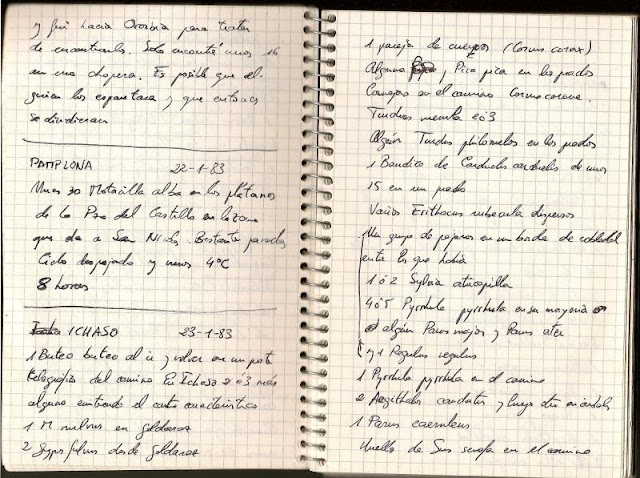 y fui hacia Ororbia para tratar
de encontrarlos. Solo encontré unos 16
en una chopera. Es posible que al-
guien los espantara y que entonces
se dividieran
PAMPLONA 22-1-83
Unas 30 Motacilla alba en los plátanos
de la Pza del Castillo en la zona
que da a San Nicolás. Bastante paradas
Cielo despejado y unos 4ºC
8 horas
ICHASO 23-1-83
1 Buteo buteo al ir y volver en un poste
telegráfico del camino En Ichaso 2 ó 3 más
alguno emitiendo el canto característico
1 M milvus en
2 Gyps fulvus desde
1 pareja de cuervos (Corvus corax)
Alguna y Pica pica en los prados
Cornejas en el camino Corvus corone.
Turdus merula 2 ó 3
Algún Turdus philomelos en los prados
1 Bandico de Carduelis carduelis de unos
15 en un prado
Varios Erithacus rubecula dispersos
Un grupo de pájaros en un borde de
entre los que había
1 ó 2 Sylvia atricapilla
4 ó 5 Pyrrhula pyrrhula en su mayoría ♂
algún Parus major y Parus ater
y 1 Regulus regulus
1 Pyrrhula pyrrhula en el camino
2 Aegithalos caudatus y luego otro
1 Parus caeruleus
Huella de Sus scrofa en el camino